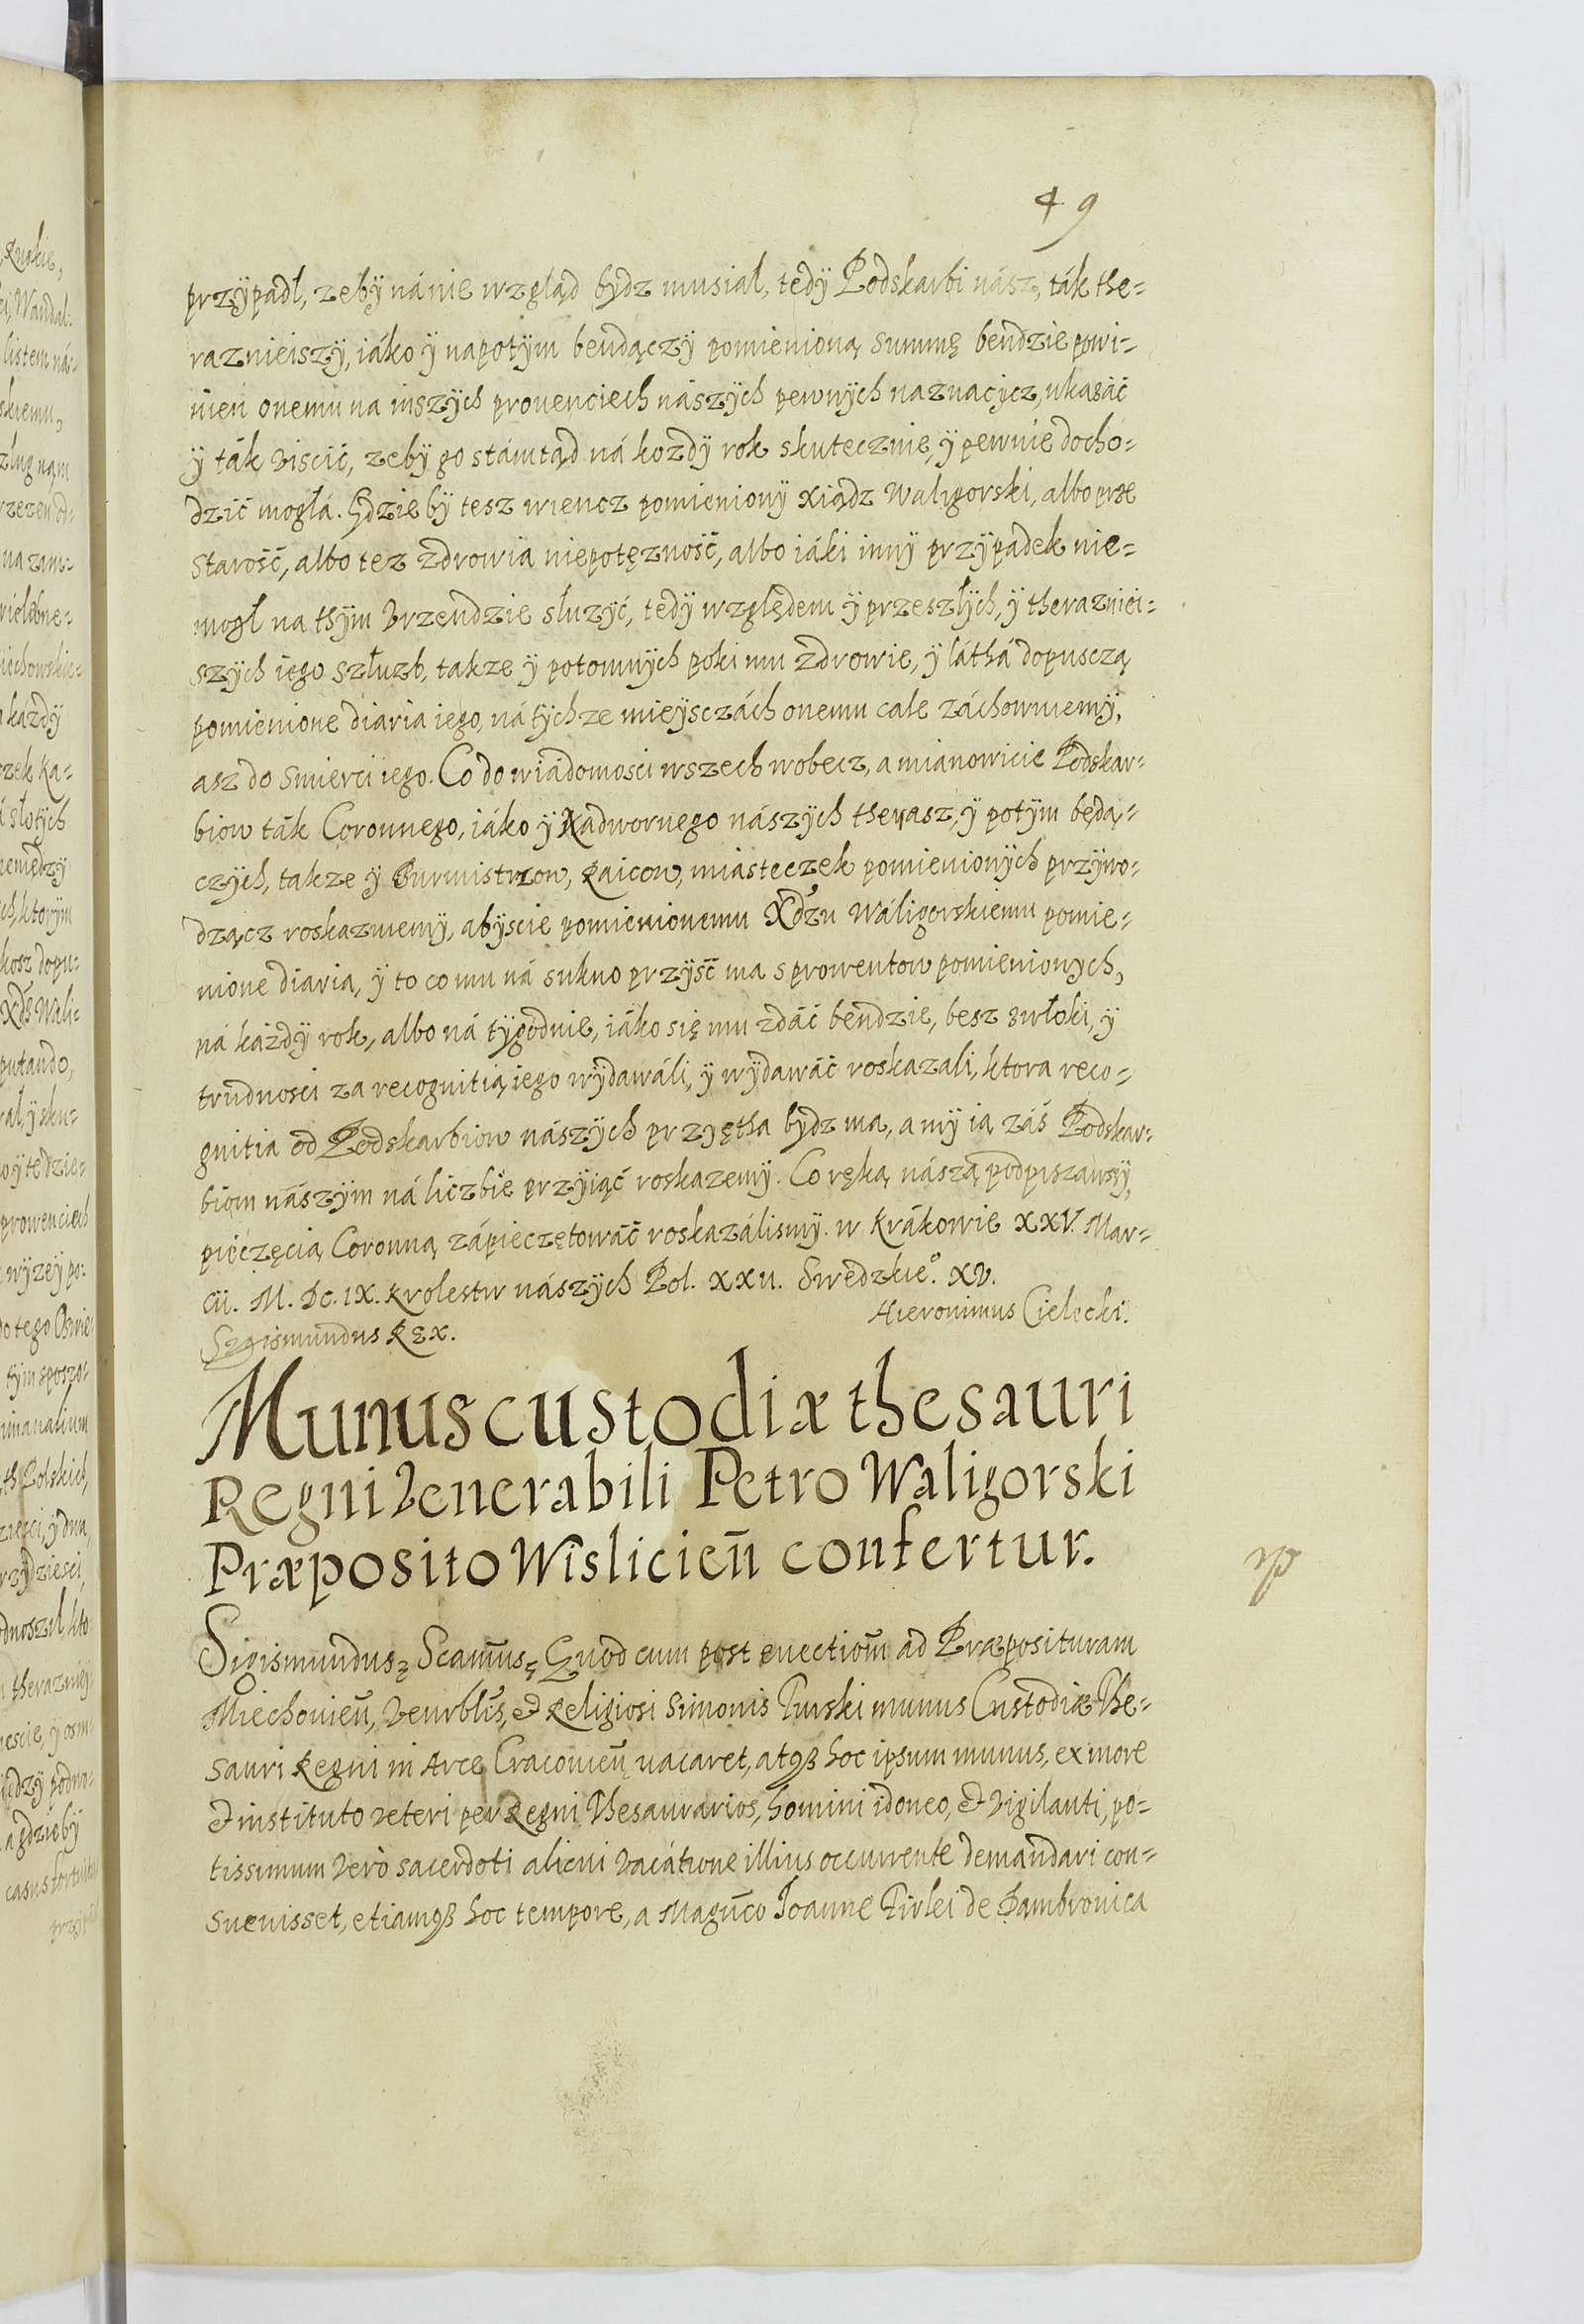 49
przÿpadł, zebÿ ná nie wzgląd bydz musiał, tedÿ Podskarbi nász, ták the=
raznieiszÿ, iáko ÿ napotÿm bendączÿ pomienioną Summę bendzie powi=
nien onemu na inszÿch prouenciech nászÿch pewnÿch naznaczÿcz, ukazáć
ÿ ták viscić, zebÿ go stámtąd ná kozdÿ rok skutecznie, ÿ pewnie docho=
dzić mogłá. Gdzie bÿ tesz wiencz pomienionÿ xiądz Waligorski, albo prze
starość, albo tez zdrowia niepotęzność, albo iáki innÿ przÿpadek nie=
mogł na thÿm vrzendzie słuzÿć, tedÿ względem ÿ przeszłÿch, ÿ theraznieÿ=
szÿch iego szłuzb, takze ÿ potomnÿch poki mu zdrowie, ÿ láthá dopusczą
pomienione diaria iego, ná tÿchze mieÿsczách onemu cale záchowuiemÿ,
asz do smierci iego. Co do wiádomosci wszech wobecz, a mianowicie Podskar=
biow ták Coronnego, iáko ÿ Nadwornego nászÿch therasz, ÿ potÿm będą=
czÿch, takze ÿ Burmistrzow, Raicow, miásteczek pomienionÿch przÿwo=
dzącz roskazuiemÿ, abÿscie pomienionemu Xdzu Wáligorskiemu pomie=
nione diaria, ÿ to co mu ná sukno przÿsć ma s prowentow pomienionych,
ná káżdÿ rok, albo ná tÿgodnie, iáko się mu zdáć bendzie, besz zwłoki, ÿ
trudnosci za recognitią iego wÿdawáli, ÿ wÿdawáć roskazali, ktora reco=
gnitia od Podskarbiow nászÿch przyętha bydz ma, a mÿ ią záś Podskar=
biom nászÿm ná liczbie przÿiąć roskazemÿ. Co ręką nászą podpiszawsÿ,
pieczęcią Coronną zápieczętowáć roskazálismÿ. w Krákowie XXV. Mar=
cii. M. Dc. IX. Krolestw nászÿch Pol. XXII. Swedzkie͠º. XV.
Hieronimus Cielecki.
Sigismundus Rex.
Munus custodiæ thesauri
Regni Venerabili Petro Waligorski
Præposito Wislicien̄ confertur.
Sigismundus Scamūs Quod cum post euectiom̄ ad Præposituram
Miechouien̄, Venrblīs, & Religiosi Simonis Turski munus Custodiæ The=
sauri Regni in Arce Cracouien̄ uacaret, atqз hoc ipsum munus, ex more
& instituto veteri per Regni Thesaurarios, homini idoneo, & vigilanti, po=
tissimum verò sacerdoti alicui vacátione illius occurrente demandari con=
sueuisset, etiamqз hoc tempore, a Magn̄co Joanne Firlei de Dąmbrouica